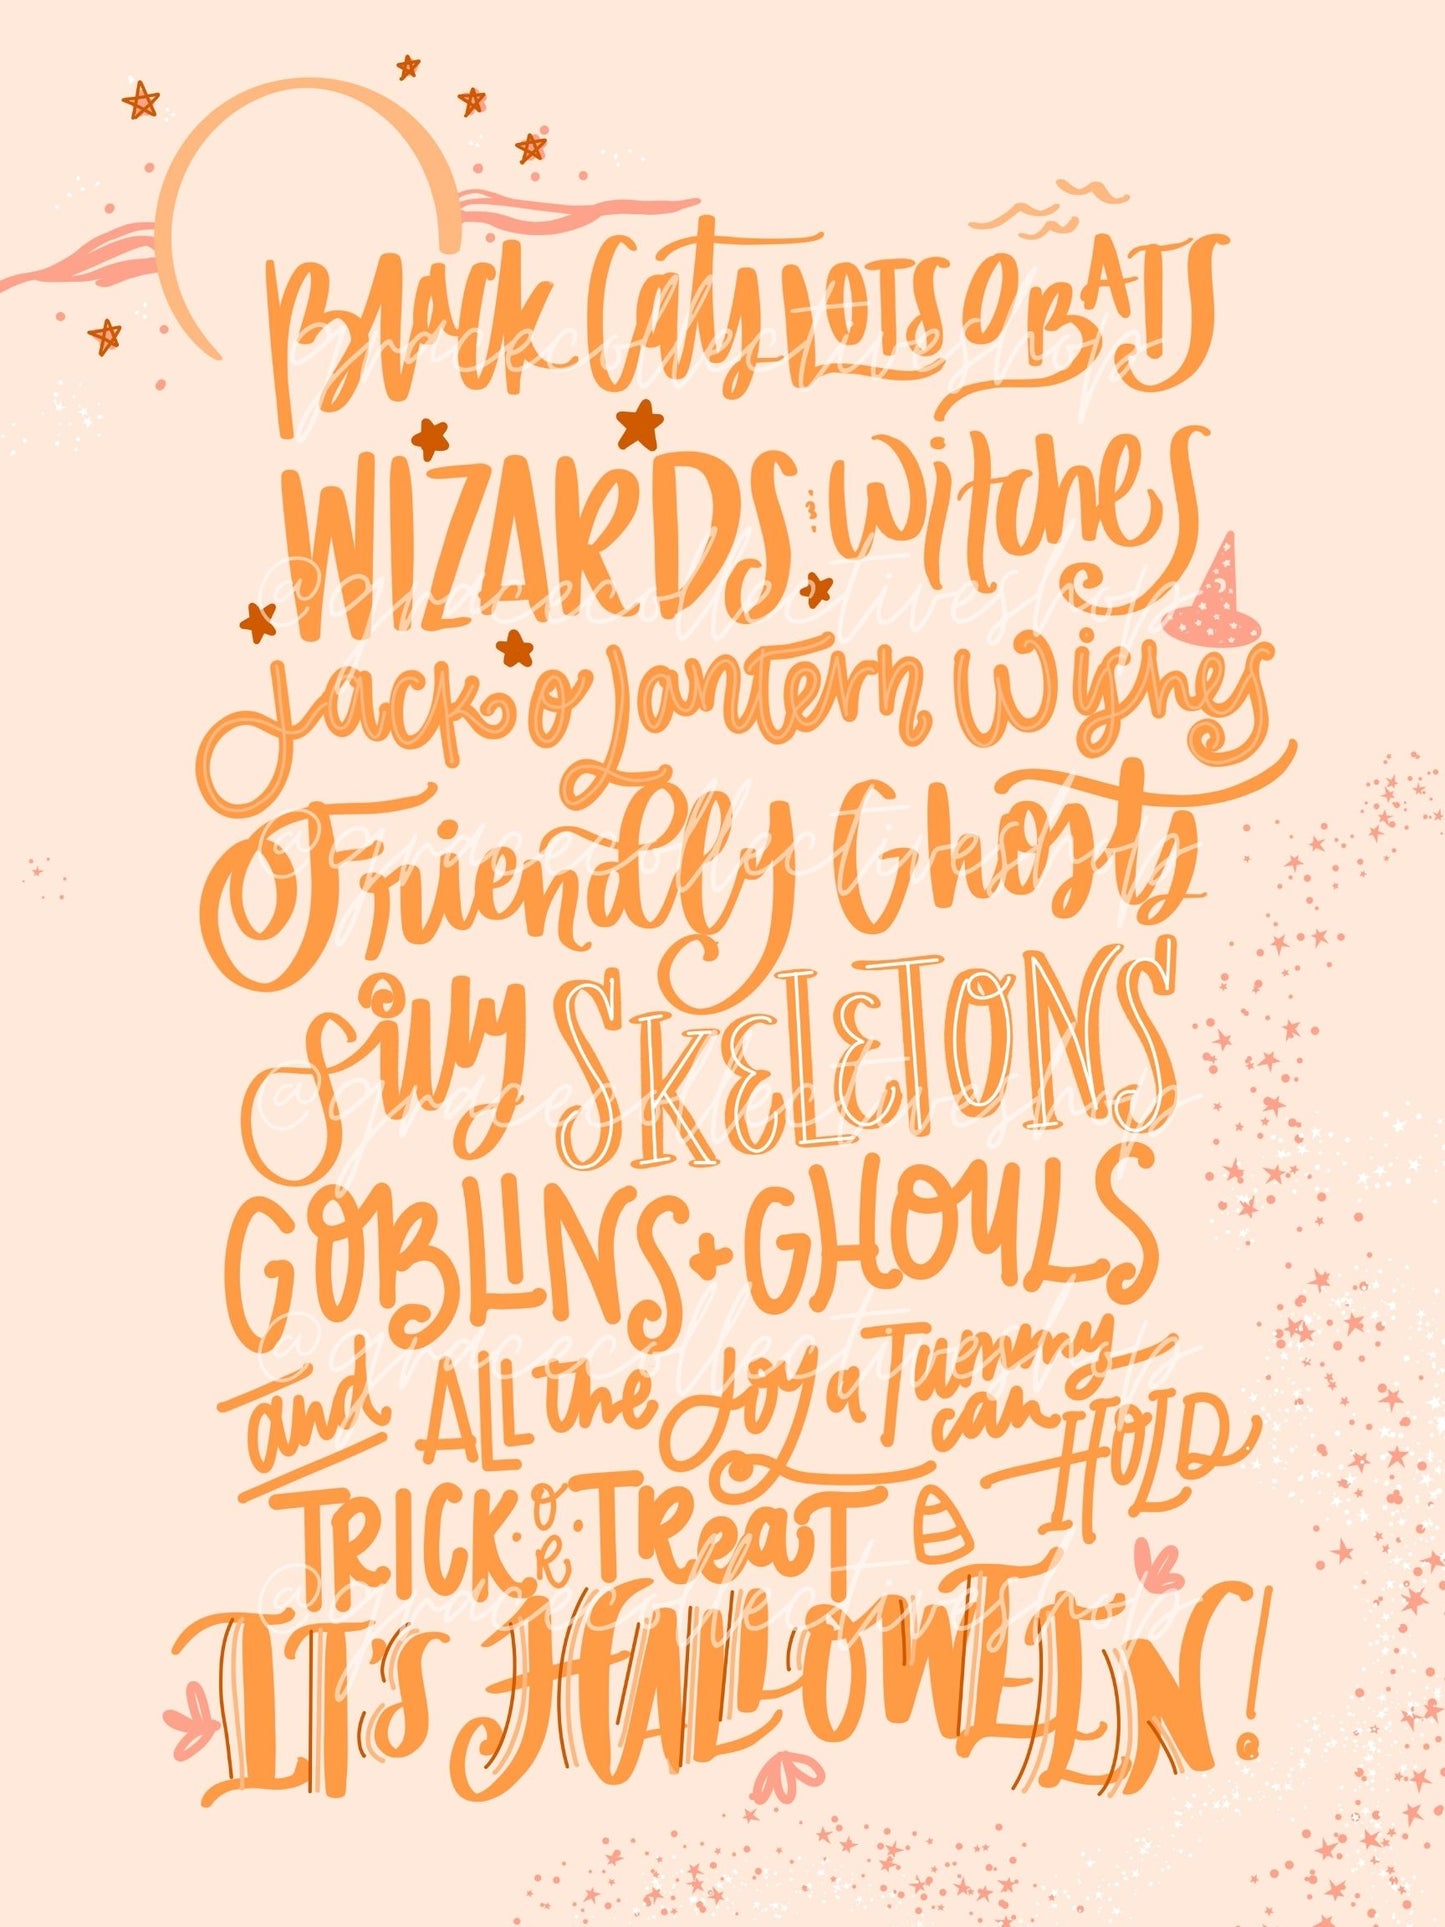 Black Cats LOTS O BATS
WIZARDS & witches
Jack o Lantern Wishes
Friendly Ghosts
Silly SKELETONS
GOBLINS + GHOULS
and ALL the Joy a Tummy
can HOLD
TRICK · OR · TREAT
IT'S HALLOWEEN!
@gracecollectiveshop
@gracecollectiveshop
@gracecollectiveshop
@gracecollectiveshop
@gracecollectiveshop
@gracecollectiveshop